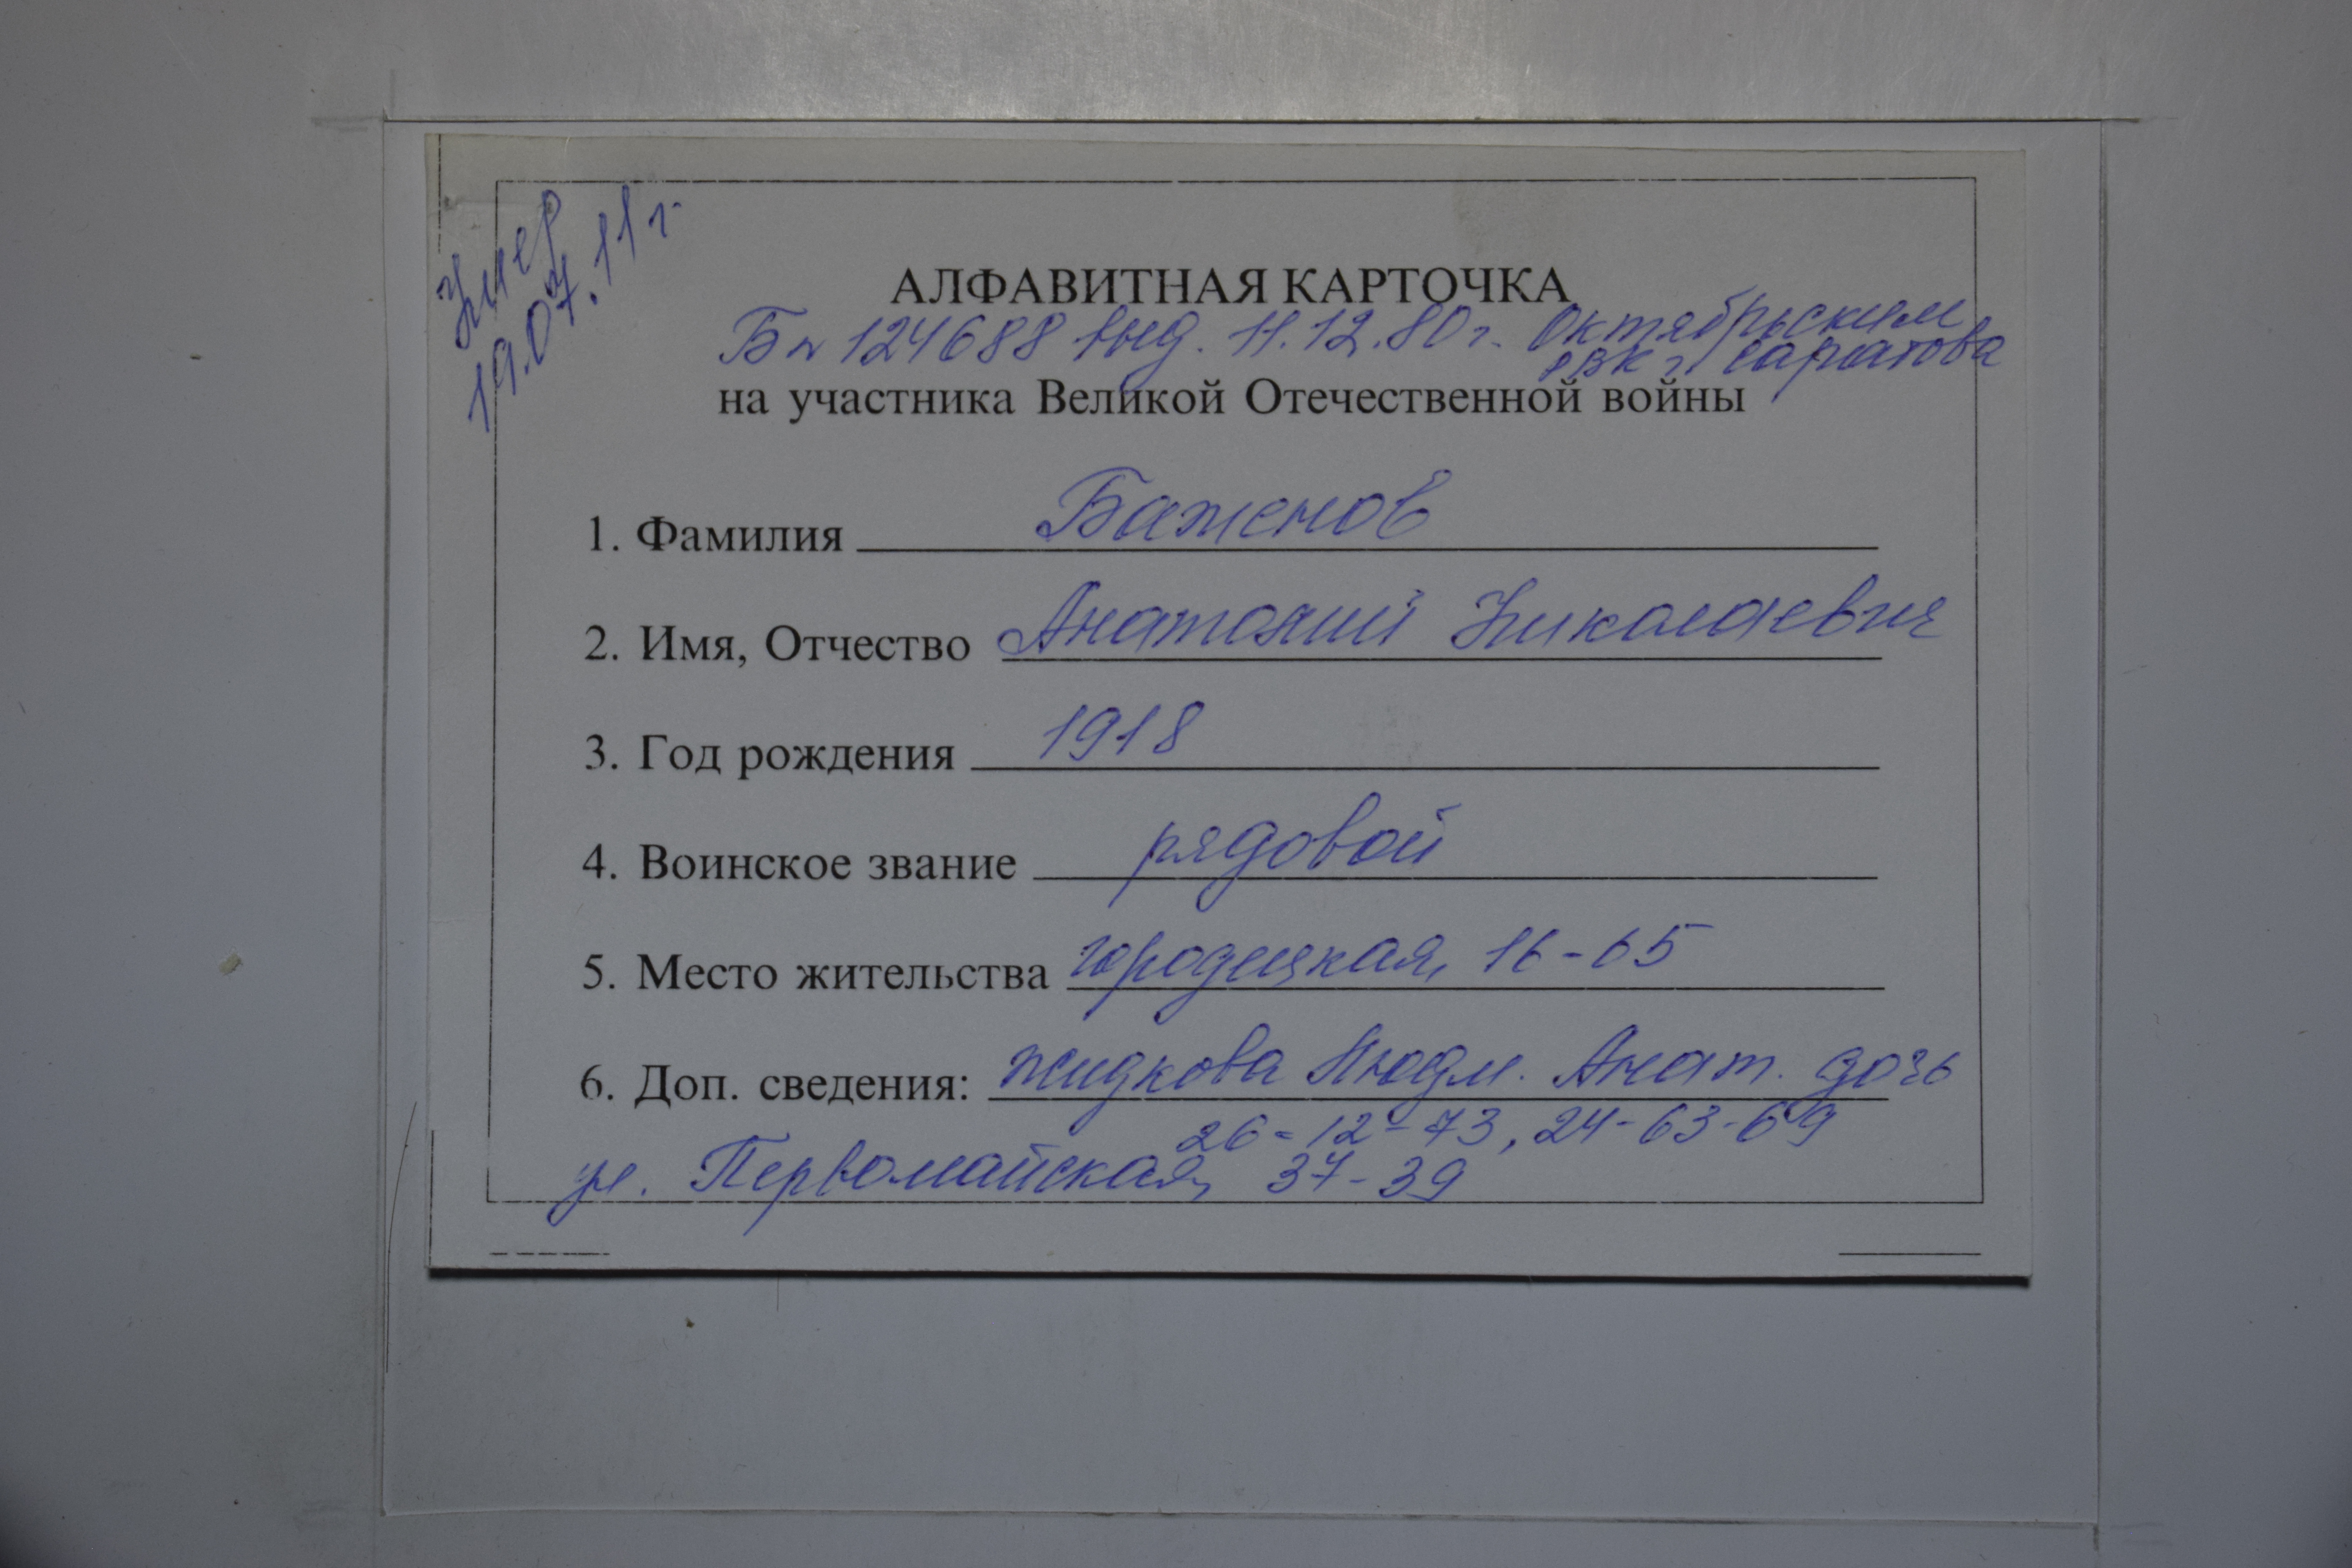 Умер
19.07.11 г.
АЛФАВИТНАЯ КАРТОЧКА
Бп 124688 выд. 11.12.80 г. Октябрьским
РВК г. Саратова
на участника Великой Отечественной войны
1. Фамилия Баженов
2. Имя, Отчество Анатолий Николаевич
3. Год рождения 1918
4. Воинское звание рядовой
5. Место жительства Городецкая, 16-65
6. Доп. сведения: Жидкова Людм. Анат. дочь
26-12-73, 24-63-69
ул. Первомайская, 37-39